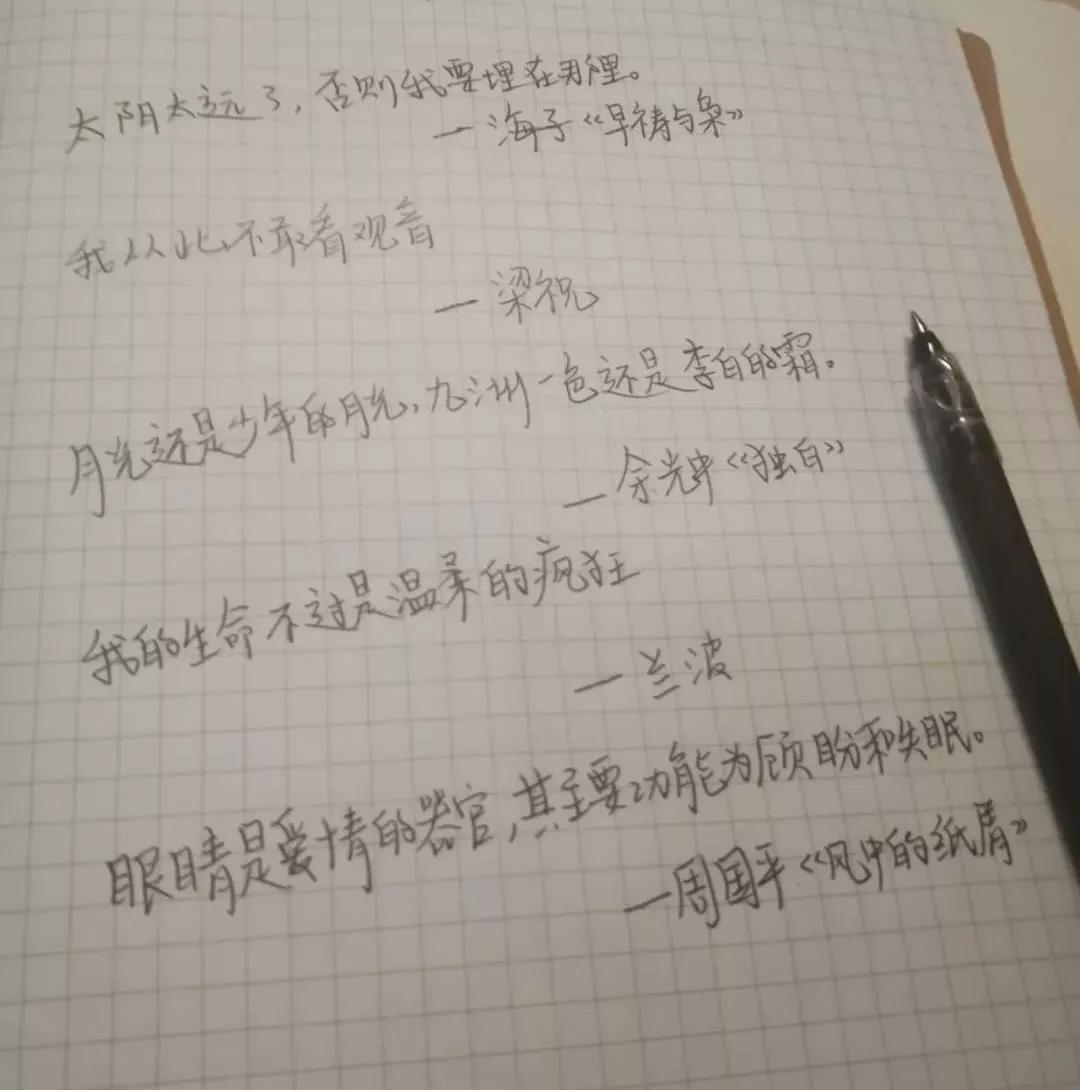 太阳太远了，否则我要埋在那里。
—海子《早祷与枭》
我从此不敢看观音
—梁祝
月光还是少年的月光，九洲一色还是李白的霜。
—余光中《独白》
我的生命不过是温柔的疯狂
—兰波
眼睛是爱情的器官，其主要功能为顾盼和失眠。
—周国平《风中的纸屑》